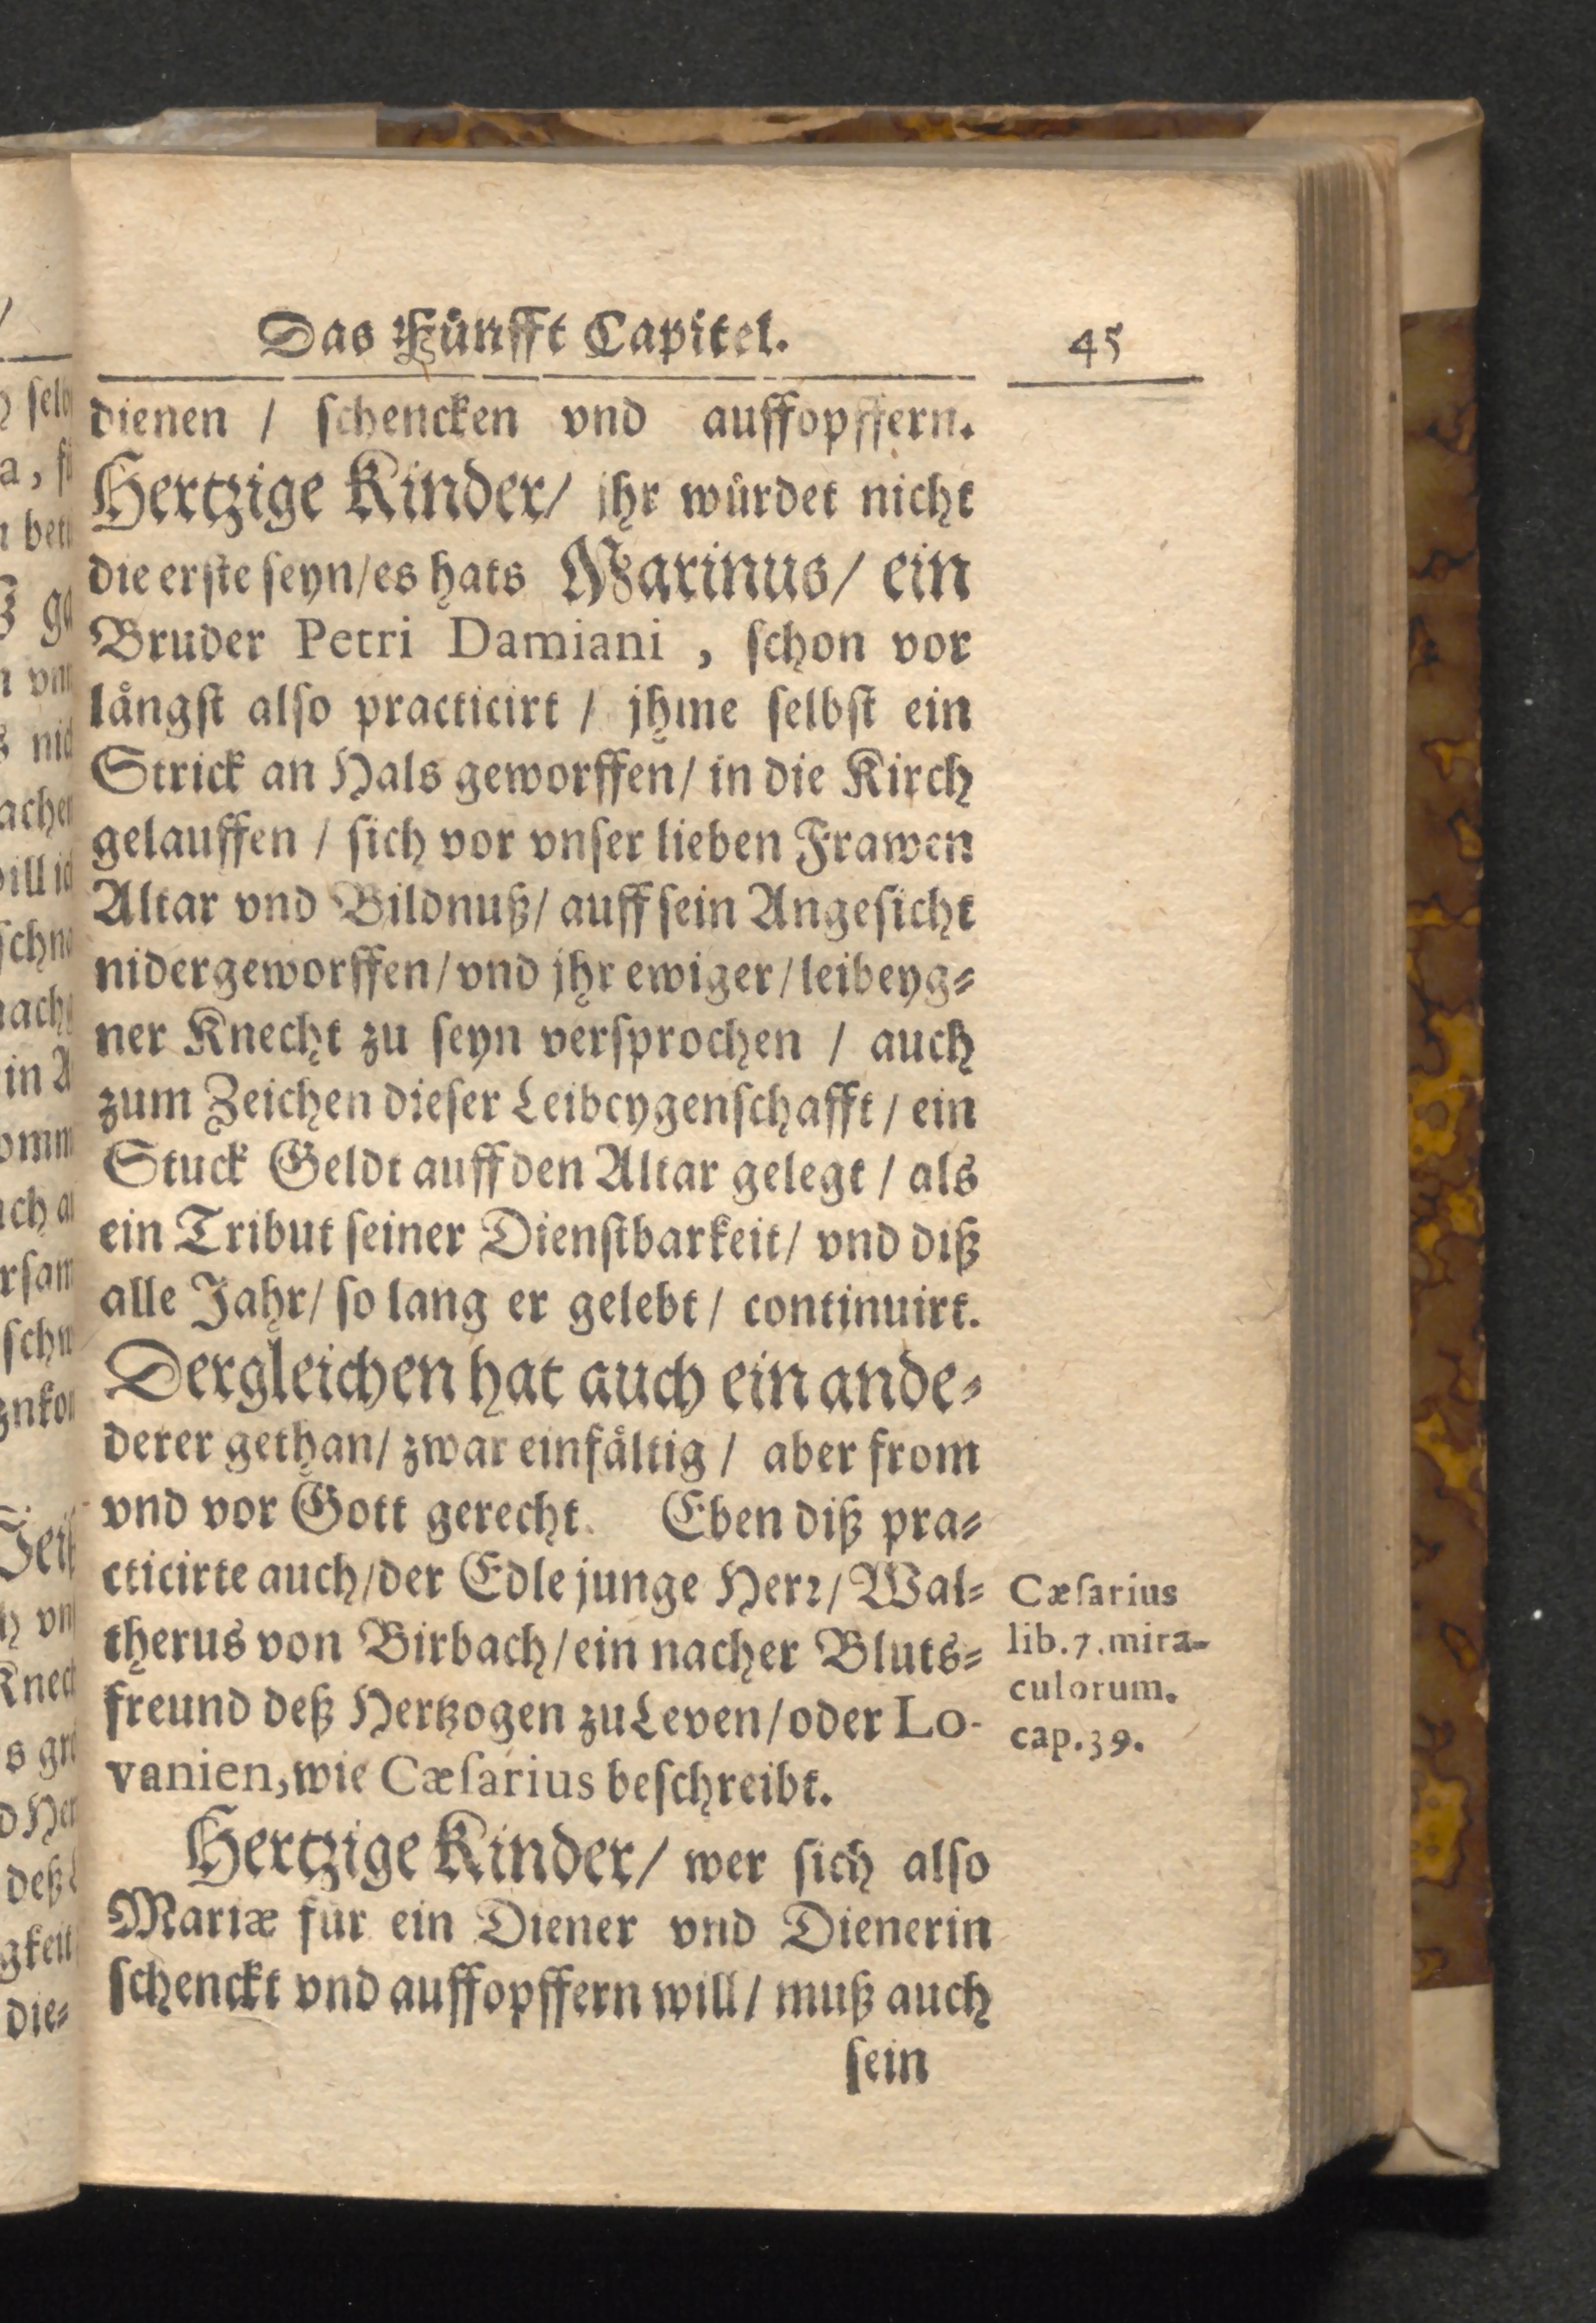 Das Fünfft Capitel. 45
dienen / ſchencken vnd auffopffern.
Hertzige Kinder/ jhr würdet nicht
die erſte ſeyn/es hats Marinus/ ein
Bruder Petri Damiani , ſchon vor
långſt alſo practicirt / jhme ſelbſt ein
Strick an Hals geworffen/ in die Kirch
gelauffen / ſich vor vnſer lieben Frawen
Altar vnd Bildnuß/ auff ſein Angeſicht
nidergeworffen/vnd jhr ewiger/leibeyg⸗
ner Knecht zu ſeyn verſprochen / auch
zum Zeichen dieſer Leibeygenſchafft / ein
Stuck Geldt auff den Altar gelegt / als
ein Tribut ſeiner Dienſtbarkeit/ vnd diß
alle Jahr/ ſo lang er gelebt / continuirt.
Dergleichen hat auch ein ande⸗
derer gethan/ zwar einfåltig / aber from
vnd vor Gott gerecht. Eben diß pra⸗
cticirte auch/der Edle junge Herꝛ/ Wal⸗
therus von Birbach/ein nacher Bluts⸗
freund deß Hertzogen zu Leven/oder Lo-
vanien,wie Cæſarius beſchreibt.
Cæſarius
lib.7.mira-
culorum.
cap.39.
Hertzige Kinder/ wer ſich alſo
Mariæ für ein Diener vnd Dienerin
ſchenckt vnd auffopffern will/ muß auch
ſein